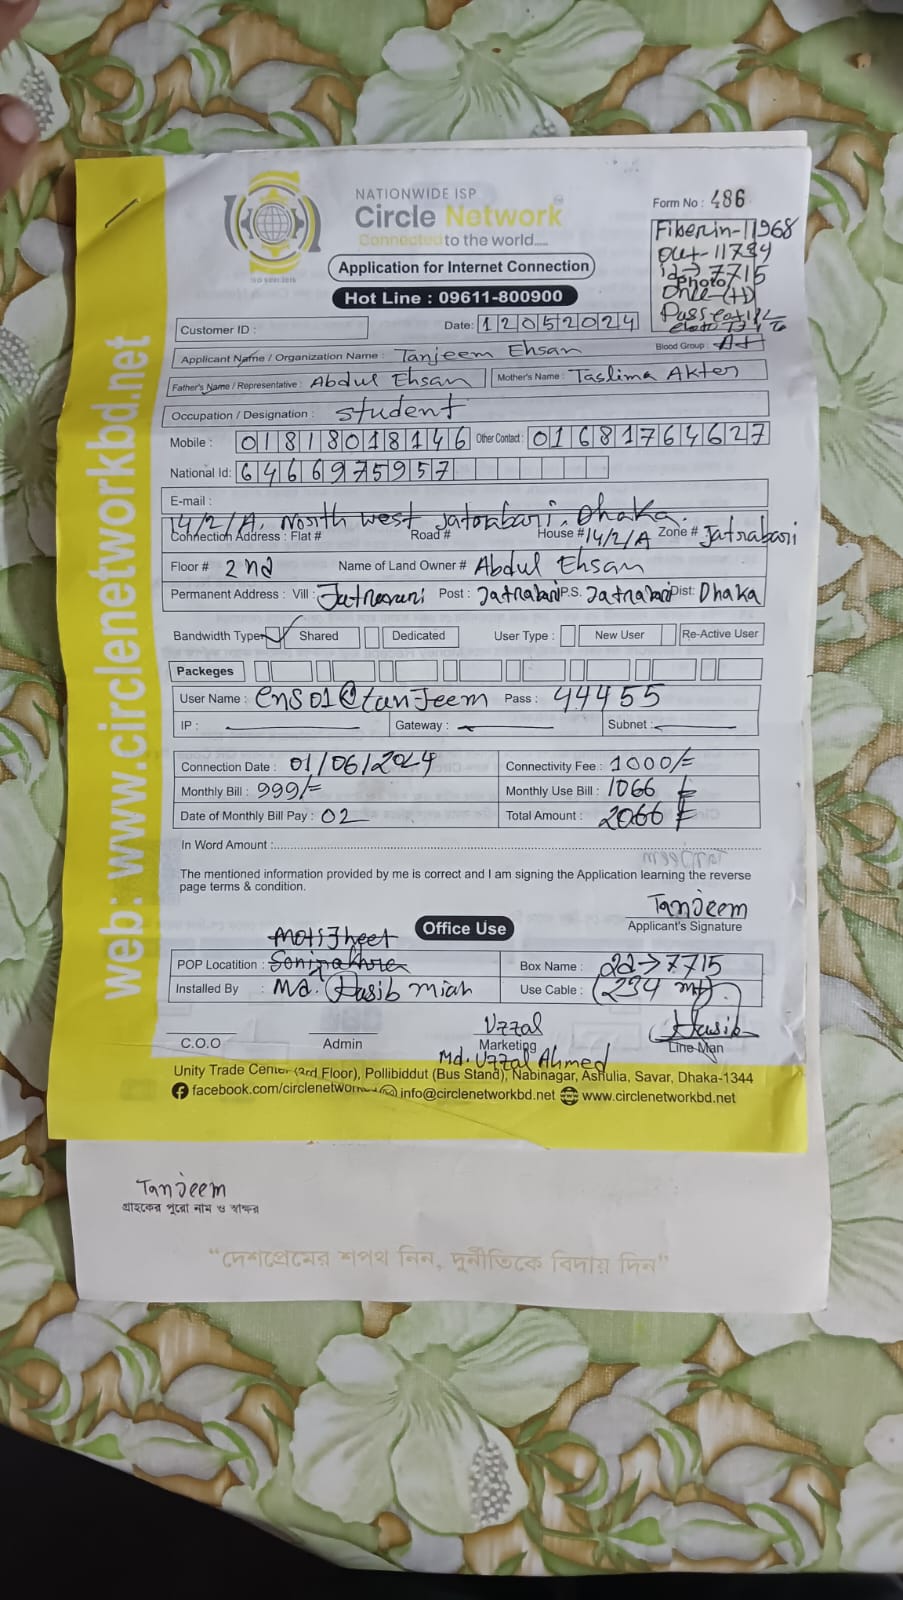 NATIONWIDE ISP
Circle Network
Connected to the world.....
ISO 9001:2015
Application for Internet Connection
Hot Line : 09611-800900
Form No : 486
Fiber in-11968
out-11734
id→7715
Photo
Once-(H)
Customer ID :
Date: 12052024
Blood Group : A+
Applicant Name / Organization Name : Tanjeem Ehsan
Father's Name / Representative : Abdul Ehsan Mother's Name : Taslima Akter
Occupation / Designation : student
Mobile : 01818018146 Other Contact : 01681764627
National Id: 6466975957
E-mail :
14/2/A, North west Jatrabari, Dhaka.
Connection Address : Flat # Road # House # 14/2/A Zone # Jatrabari
Floor # 2nd Name of Land Owner # Abdul Ehsan
Permanent Address : Vill : Post : Jatrabari P.S. Jatrabari Dist: Dhaka
Bandwidth Type Shared Dedicated User Type : New User Re-Active User
Packeges
User Name : ens01@tanJeem Pass : 44455
IP : Gateway : Subnet :
Connection Date : 01/06/2024 Connectivity Fee : 1000/=
Monthly Bill : 999/= Monthly Use Bill : 1066
Date of Monthly Bill Pay : 02 Total Amount : 2066
In Word Amount :
The mentioned information provided by me is correct and I am signing the Application learning the reverse
page terms & condition.
Tanjeem
Applicant's Signature
Office Use
MotiJheel
POP Locatition : Box Name : 7715
Installed By : Md. Hasib miah Use Cable : (234 m)
Uzzal Hasib
C.O.O Admin Marketing Line Man
Md. Uzzal Ahmed
Unity Trade Center (2rd Floor), Pollibiddut (Bus Stand), Nabinagar, Ashulia, Savar, Dhaka-1344
info@circlenetworkbd.net www.circlenetworkbd.net
web: www.circlenetworkbd.net
Tanjeem
গ্রাহকের পুরো নাম ও স্বাক্ষর
“দেশপ্রেমের শপথ নিন, দুর্নীতিকে বিদায় দিন”